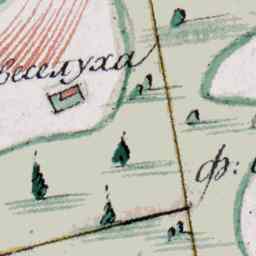 веселуха
ф: